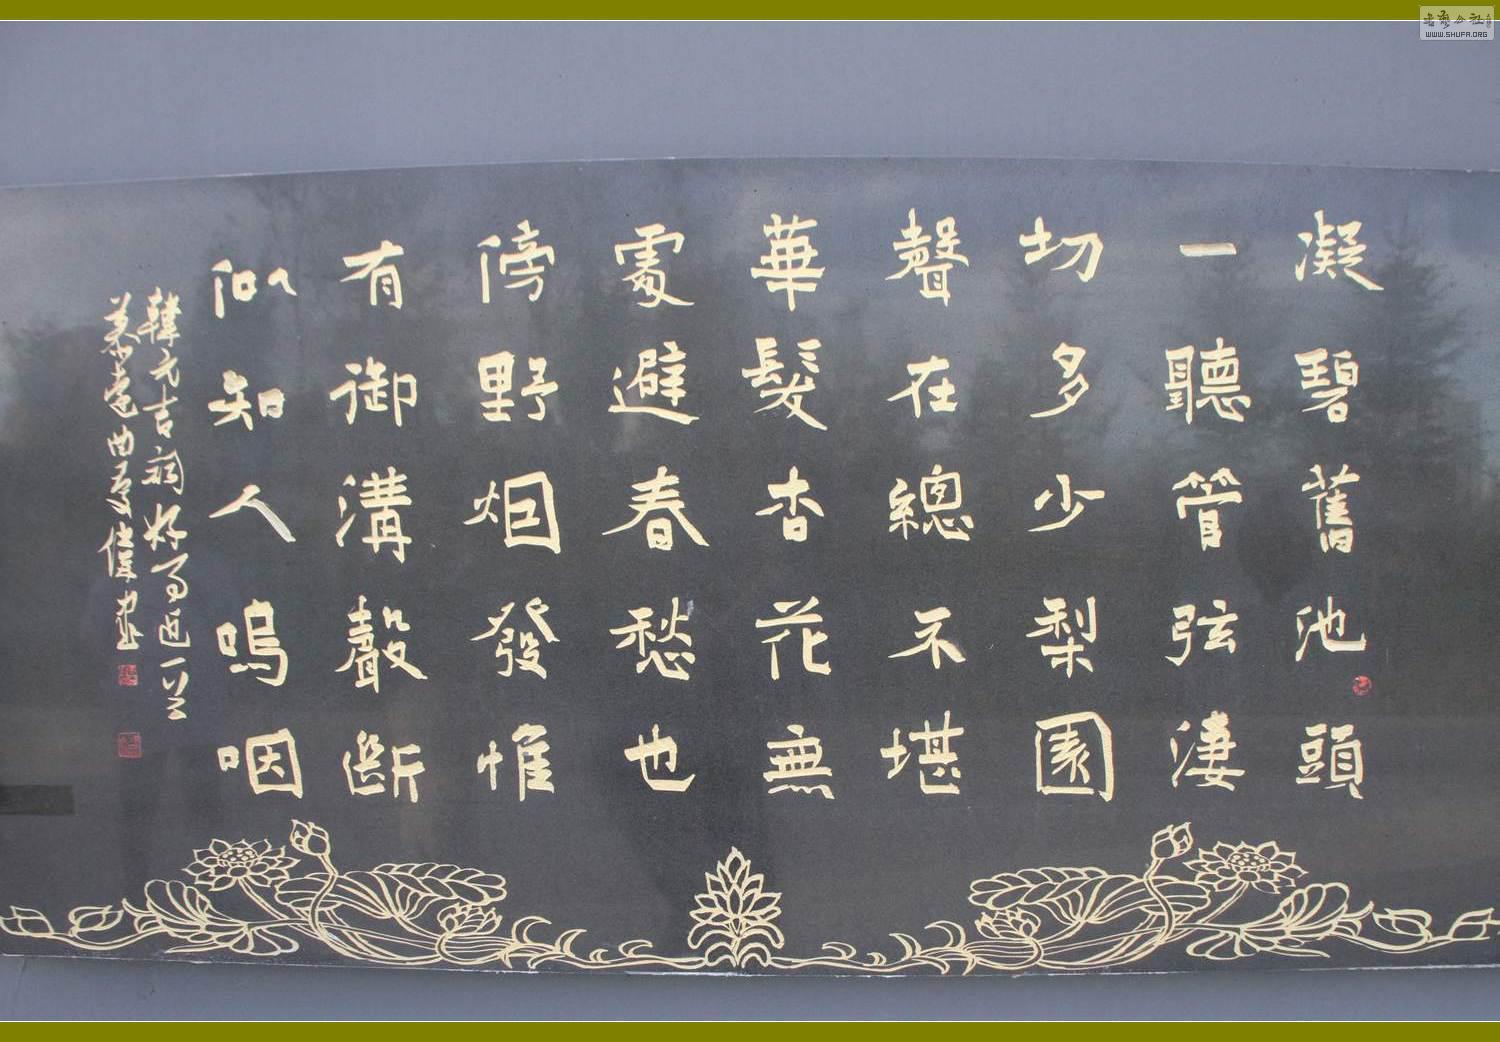 凝碧舊池頭
一聽管弦淒
切多少梨園
聲在總不堪
華髮杏花無
處避春愁也
傍野烟發惟
有御溝聲斷
似知人嗚咽
韓元吉詞好事近一首
書藝公社
WWW.SHUFA.ORG